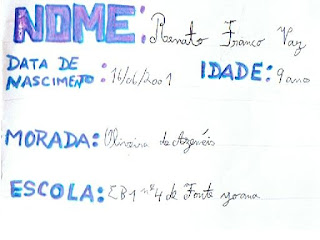 NOME: Renato Franco Vaz
DATA DE
NASCIMENTO: 16/06/2001 IDADE: 9 ano
MORADA: Oliveira de Azeméis
ESCOLA: EB1 nº4 de Fonte